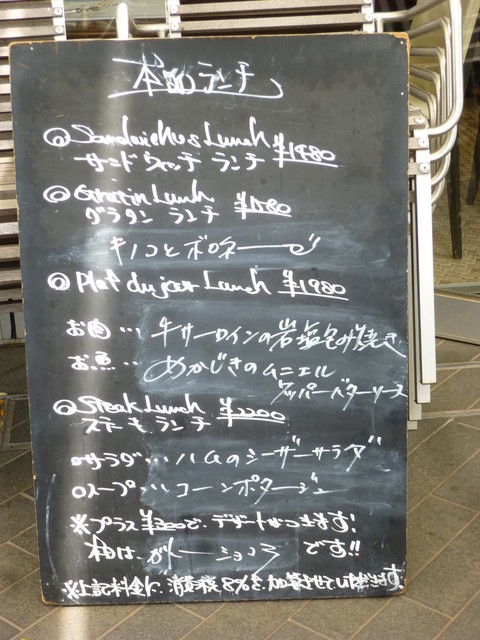 本日のランチ
Sandwiches Lunch ¥1480
サンドウィッチ ランチ
Gratin Lunch ¥1580
グラタン ランチ
キノコとボロネーゼ
Plat du jour Lunch ¥1980
お肉… 牛サーロインの岩塩包み焼き
お魚… めかじきのムニエル
ケッパーバターソース
Steak Lunch ¥2200
ステーキ ランチ
サラダ… ハムのシーザーサラダ
スープ… コーンポタージュ
※プラス¥300で、デザートがつきます!
です!!
※上記料金に、消費税8%を加算させていただきます